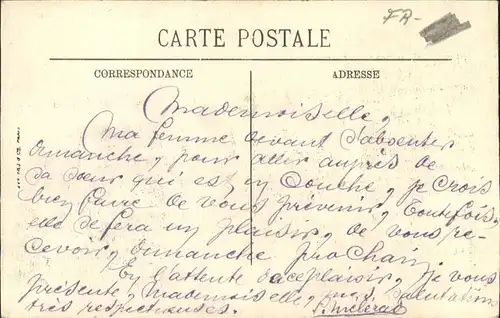 FR-
CARTE POSTALE
CORRESPONDANCE
ADRESSE
Mademoiselle,
Ma femme devant s'absenter
dimanche, pour aller auprès de
sa sœur qui est en couche, je crois
bien faire de vous prévenir, toutefois,
elle se fera un plaisir, de vous re-
cevoir, dimanche prochain.
En l'attente de ce plaisir, je vous
présente, Mademoiselle, salutations
très respectueuses.